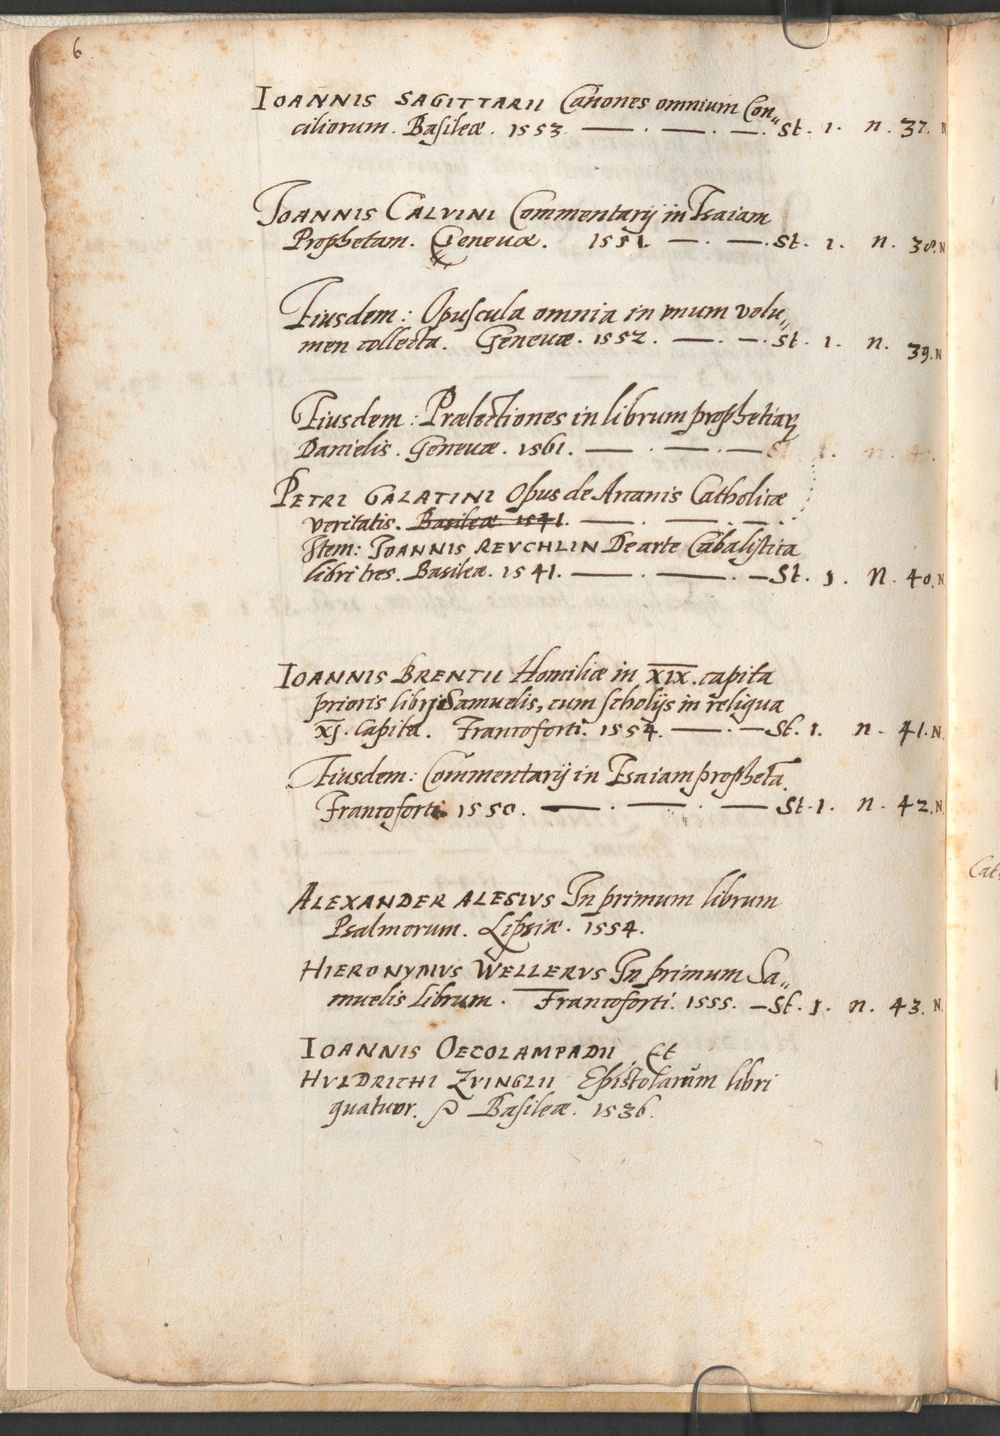 6
IOANNIS SAGITTARII Canones omnium Con„
ciliorum. Basileæ. 1553. — . — . — . St. 1. n. 37. N
IOANNIS CALVINI Commentarij in Isaiam
Prophetam. Geneuæ. 1551. — . — . St. 1. n. 38. N
Eiusdem: Opuscula omnia in vnum volu„
men collecta. Geneuæ. 1552. — . — . St. 1. n. 39. N
Eiusdem: Prælectiones in librum prophetiarꝝ
Danielis. Geneuæ. 1561. — . — . — St. 1. n. 40.
PETRI GALATINI Opus de Arcanis Catholicæ
veritatis. Basileæ 1541. — . — . — .
Item: IOANNIS REVCHLIN De arte Cabalistica
libri tres. Basileæ. 1541. — . — . — St. 1. n. 40. N
IOANNIS BRENTII Homiliæ in XIX. capita
prioris libri Samuelis, cum scholijs in reliqua
XJ. Capita. Francoforti. 1554. — . — St. 1. n. 41. N
Eiusdem: Commentarij in Isaiam prophetā.
Francoforti 1550. — . — . — St. 1. n. 42. N
ALEXANDER ALESIVS In primum librum
Psalmorum. Lipsiæ. 1554.
HIERONYMVS WELLERVS In primum Sa„
muelis librum. Francoforti. 1555. — St. 1. n. 43. N
IOANNIS OECOLAMPADII Et
HVLDRICHI ZVINGLII Epistolarum libri
quatuor. Basileæ. 1536.
Cat